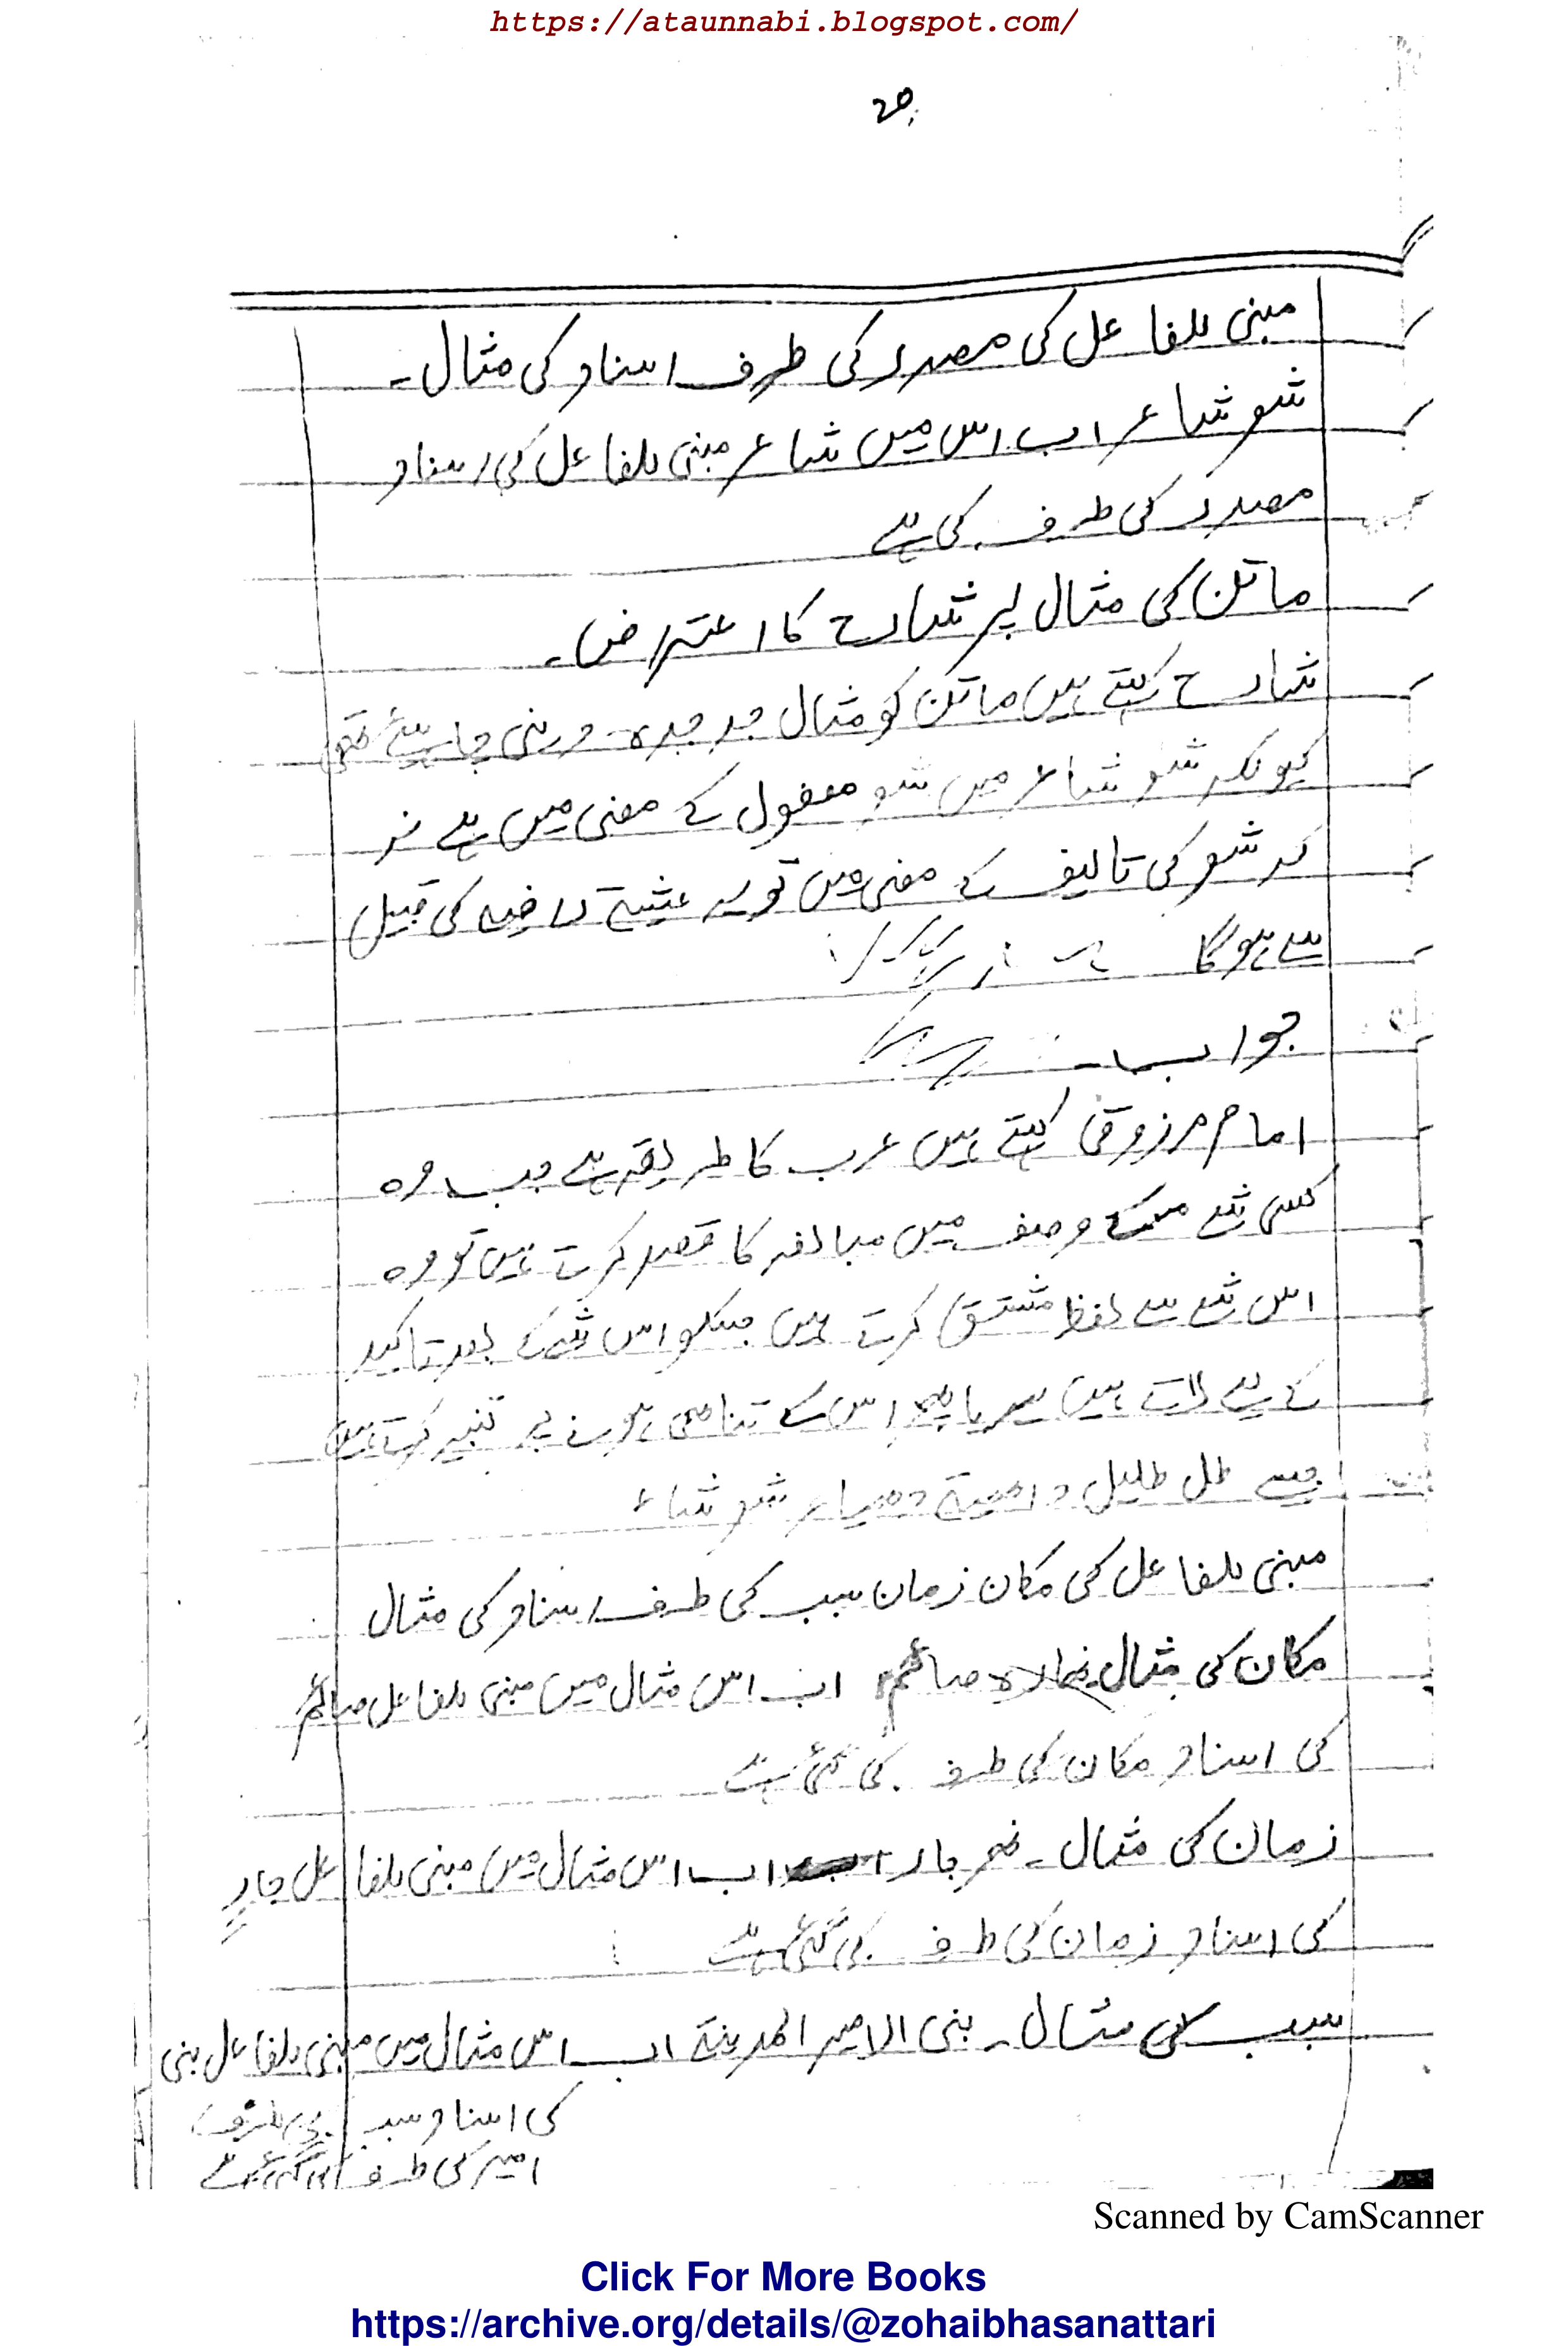 https://ataunnabi.blogspot.com/
مبنی للفاعل کی مصدر کی طرف اسناد کی مثال۔
شعر شاعر اب اس میں شاعر مبنی للفاعل کی اسناد
مصدر کی طرف کی ہے
ماتن کی مثال پر شارح کا اعتراض۔
شارح کہتے ہیں ماتن کو مثال جد جدہ دینی چاہیئے تھی
کیونکہ شعر شاعر میں شعر مفعول کے معنی میں ہے نہ
کہ شعر کی تالیف کے معنی میں تو یہ عیشۃ راضیہ کی قبیل
سے ہوگا
جواب۔
امام مرزوقی کہتے ہیں عرب کا طریقہ ہے جب وہ
کسی شئے کے وصف میں مبالغہ کا قصد کرتے ہیں تو وہ
اس شئے سے لفظ مشتق کرتے ہیں جسکو اس شئے کے بعد تاکید
کے لیے لاتے ہیں اس کے تناھی ہونے پر تنبیہ کرتے ہیں
جیسے ظل ظلیل شعر شاعر
مبنی للفاعل کی مکان زمان سبب کی طرف اسناد کی مثال
مکان کی مثال نھارہ صائم اب اس مثال میں مبنی للفاعل صائم
کی اسناد مکان کی طرف کی گئی ہے
زمان کی مثال۔ نھر جار اب اس مثال میں مبنی للفاعل جارٍ
کی اسناد زمان کی طرف کی گئی ہے
سبب کی مثال۔ بنی الامیر المدینۃ اب اس مثال میں مبنی للفاعل بنی
کی اسناد سبب کی طرف
امیر کی طرف کی گئی ہے
Scanned by CamScanner
Click For More Books
https://archive.org/details/@zohaibhasanattari